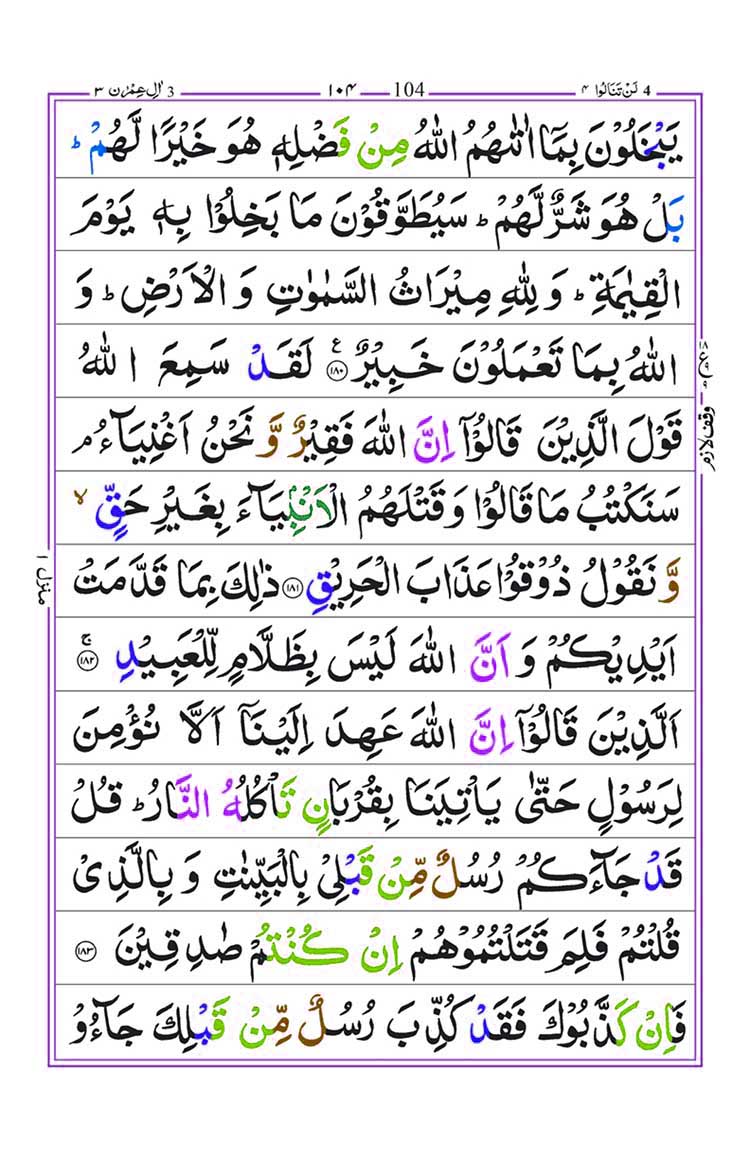 3 اٰلِ عِمْرٰن ۳
۱۰۴ 104
4 لَنْ تَنَالُوا ۴
يَبْخَلُوْنَ بِمَاۤ اٰتٰىهُمُ اللّٰهُ مِنْ فَضْلِهٖ هُوَ خَيْرًا لَّهُمْ ؕ
بَلْ هُوَ شَرٌّ لَّهُمْ ؕ سَيُطَوَّقُوْنَ مَا بَخِلُوْا بِهٖ يَوْمَ
الْقِيٰمَةِ ؕ وَ لِلّٰهِ مِيْرَاثُ السَّمٰوٰتِ وَ الْاَرْضِ ؕ وَ
اللّٰهُ بِمَا تَعْمَلُوْنَ خَبِيْرٌ ۧ ﴿۱۸۰﴾ لَقَدْ سَمِعَ اللّٰهُ
قَوْلَ الَّذِيْنَ قَالُوْۤا اِنَّ اللّٰهَ فَقِيْرٌ وَّ نَحْنُ اَغْنِيَآءُ ۘ
سَنَكْتُبُ مَا قَالُوْا وَ قَتْلَهُمُ الْاَنْۢبِيَآءَ بِغَيْرِ حَقٍّ ۙ
وَّ نَقُوْلُ ذُوْقُوْا عَذَابَ الْحَرِيْقِ ﴿۱۸۱﴾ ذٰلِكَ بِمَا قَدَّمَتْ
اَيْدِيْكُمْ وَ اَنَّ اللّٰهَ لَيْسَ بِظَلَّامٍ لِّلْعَبِيْدِ ۚ ﴿۱۸۲﴾
اَلَّذِيْنَ قَالُوْۤا اِنَّ اللّٰهَ عَهِدَ اِلَيْنَاۤ اَلَّا نُؤْمِنَ
لِرَسُوْلٍ حَتّٰى يَاْتِيَنَا بِقُرْبَانٍ تَاْكُلُهُ النَّارُ ؕ قُلْ
قَدْ جَآءَكُمْ رُسُلٌ مِّنْ قَبْلِيْ بِالْبَيِّنٰتِ وَ بِالَّذِيْ
قُلْتُمْ فَلِمَ قَتَلْتُمُوْهُمْ اِنْ كُنْتُمْ صٰدِقِيْنَ ﴿۱۸۳﴾
فَاِنْ كَذَّبُوْكَ فَقَدْ كُذِّبَ رُسُلٌ مِّنْ قَبْلِكَ جَآءُوْ
وقف لازم
منزل ۱